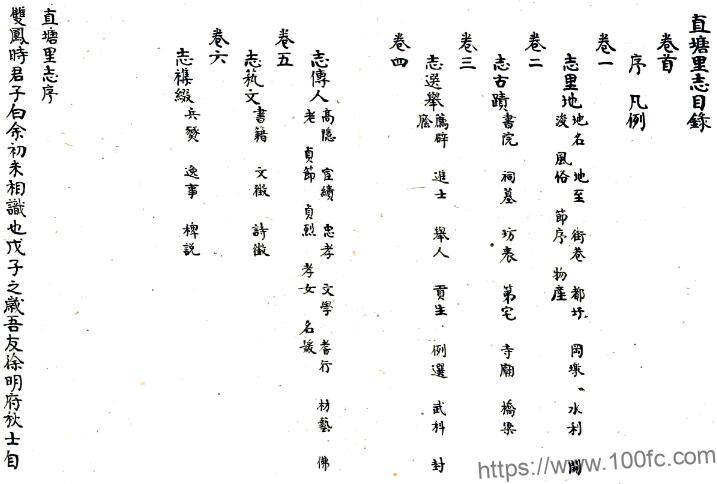 直塘里志目錄
卷首
序 凡例
卷一
志里地 地名 地至 街巷 都圩 岡墩 水利 開
浚 風俗 節序 物產
卷二
志古蹟 書院 祠墓 坊表 第宅 寺廟 橋梁
卷三
志選舉 薦辟 進士 舉人 貢生 例選 武科 封
廕
卷四
志傳人 高隱 宦績 忠孝 文學 耆行 材藝 佛
老 貞節 貞烈 孝女 名媛
卷五
志藝文 書籍 文徵 詩徵
卷六
志襍綴 兵燹 逸事 稗説
直塘里志序
雙鳳時君子白余初未相識也戊子之歲吾友徐明府秋士自
https://www.100fc.com